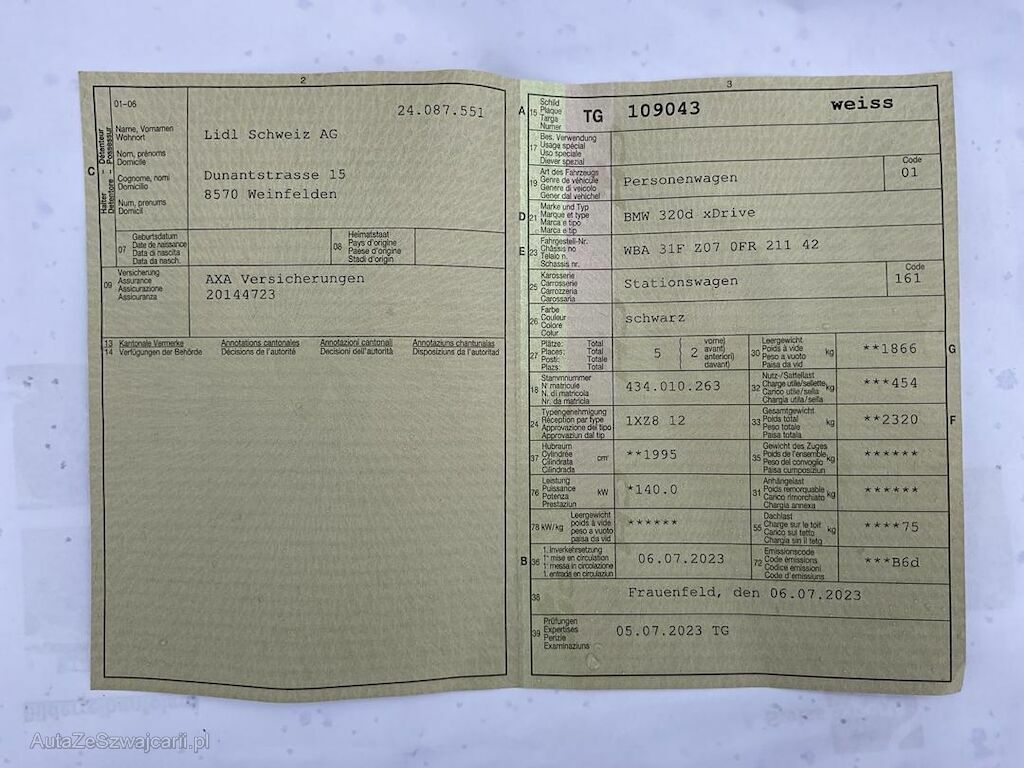 2
01-06
24.087.551
C
Halter - Détenteur
Detentore - Possessur
Name, Vornamen
Wohnort
Nom, prénoms
Domicile
Cognome, nomi
Domicilio
Num, prenums
Domicil
Lidl Schweiz AG
Dunantstrasse 15
8570 Weinfelden
07
Geburtsdatum
Date de naissance
Data di nascita
Data da nasch.
08
Heimatstaat
Pays d'origine
Paese d'origine
Stadi d'origin
09
Versicherung
Assurance
Assicurazione
Assicuranza
AXA Versicherungen
20144723
13 Kantonale Vermerke Annotations cantonales Annotazioni cantonali Annotaziuns chantunalas
14 Verfügungen der Behörde Décisions de l'autorité Decisioni dell'autorità Disposiziuns da l'autoritad
3
A
15
Schild
Plaque
Targa
Numer
TG 109043 weiss
17
Bes. Verwendung
Usage spécial
Uso speciale
Diever spezial
19
Art des Fahrzeugs
Genre de véhicule
Genere di veicolo
Gener dal vehichel
Personenwagen
Code
01
D
21
Marke und Typ
Marque et type
Marca e tipo
Marca e tip
BMW 320d xDrive
E
23
Fahrgestell-Nr.
Châssis no
Telaio n.
Schassis nr.
WBA 31F Z07 0FR 211 42
25
Karosserie
Carrosserie
Carrozzeria
Carossaria
Stationswagen
Code
161
26
Farbe
Couleur
Colore
Colur
schwarz
27
Plätze: Total
Places: Total
Posti: Totale
Plazs: Total
5 ( 2
vorne)
avant)
anteriori)
davant)
30
Leergewicht
Poids à vide
Peso a vuoto
Paisa da vid
kg
**1866
G
18
Stammnummer
N° matricule
N. di matricola
Nr. da matricla
434.010.263
32
Nutz-/Sattellast
Charge utile/sellette
Carico utile/sella
Chargia utila/sella
kg
***454
24
Typengenehmigung
Réception par type
Approvazione del tipo
Approvaziun dal tip
1XZ8 12
33
Gesamtgewicht
Poids total
Peso totale
Paisa totala
kg
**2320
F
37
Hubraum
Cylindrée
Cilindrata
Cilindrada
cm³
**1995
35
Gewicht des Zuges
Poids de l'ensemble
Peso del convoglio
Paisa cumposiziun
kg
******
76
Leistung
Puissance
Potenza
Prestaziun
kW
*140.0
31
Anhängelast
Poids remorquable
Carico rimorchiato
Chargia annexa
kg
******
78 kW/kg
Leergewicht
poids à vide
peso a vuoto
paisa da vid
******
55
Dachlast
Charge sur le toit
Carico sul tetto
Chargia sin il tetg
kg
****75
B
36
1. Inverkehrsetzung
1re mise en circulation
1a messa in circolazione
1. entrada en circulaziun
06.07.2023
72
Emissionscode
Code émissions
Codice emissioni
Code d'emissiuns
***B6d
38
Frauenfeld, den 06.07.2023
39
Prüfungen
Expertises
Perizie
Examinaziuns
05.07.2023 TG
AutaZeSzwajcarii.pl